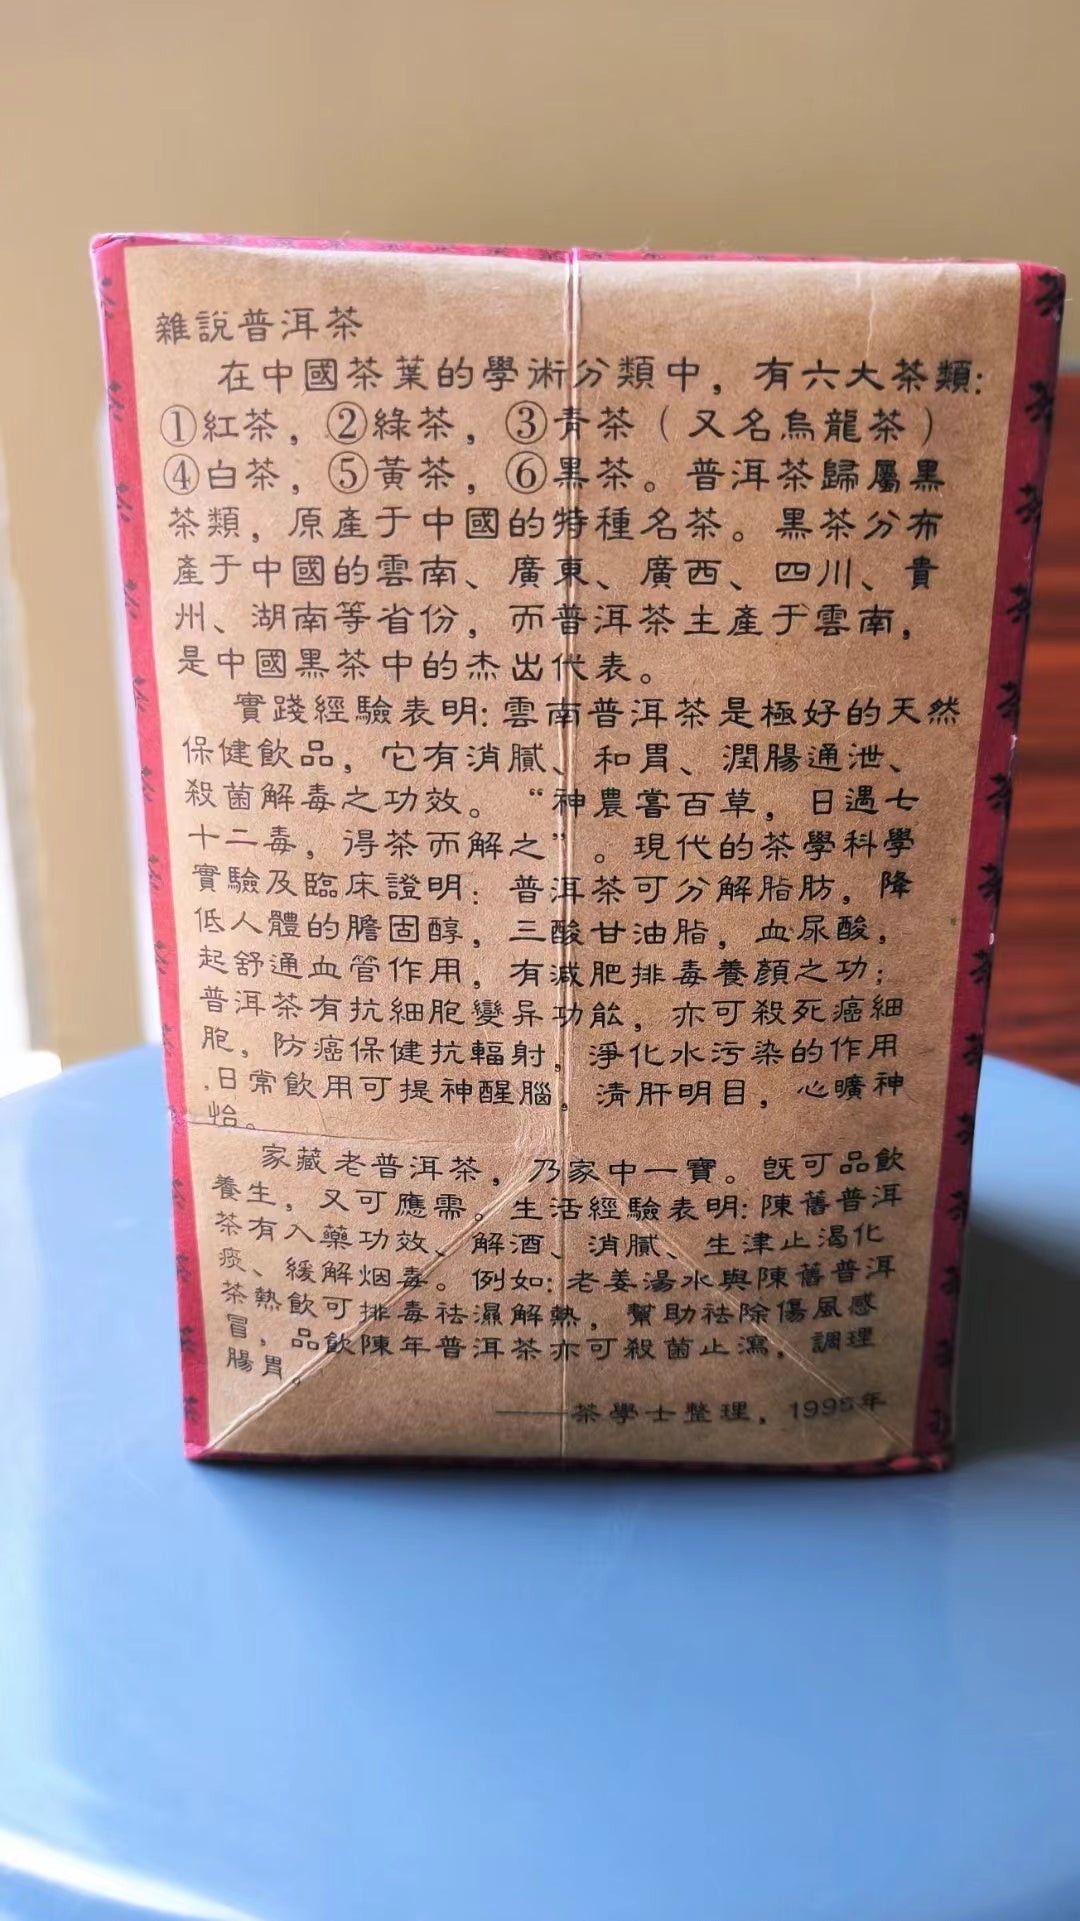 雜説普洱茶
在中國茶葉的學術分類中，有六大茶類：
①紅茶，②綠茶，③青茶（又名烏龍茶）
④白茶，⑤黃茶，⑥黑茶。普洱茶歸屬黑
茶類，原產于中國的特種名茶。黑茶分布
產于中國的雲南、廣東、廣西、四川、貴
州、湖南等省份，而普洱茶主產于雲南，
是中國黑茶中的杰出代表。
實踐經驗表明：雲南普洱茶是極好的天然
保健飲品，它有消膩、和胃、潤腸通泄、
殺菌解毒之功效。“神農嘗百草，日遇七
十二毒，得茶而解之”。現代的茶學科學
實驗及臨床證明：普洱茶可分解脂肪，降
低人體的膽固醇，三酸甘油脂，血尿酸，
起舒通血管作用，有減肥排毒養顏之功；
普洱茶有抗細胞變异功能，亦可殺死癌細
胞，防癌保健抗輻射，淨化水污染的作用
.日常飲用可提神醒腦，清肝明目，心曠神
怡。
家藏老普洱茶，乃家中一寶。既可品飲
養生，又可應需。生活經驗表明：陳舊普洱
茶有入藥功效、解酒、消膩、生津止渴化
痰、緩解烟毒。例如：老姜湯水與陳舊普洱
茶熱飲可排毒祛濕解熱，幫助祛除傷風感
冒，品飲陳年普洱茶亦可殺菌止瀉，調理
腸胃。
——茶學士整理，1995年